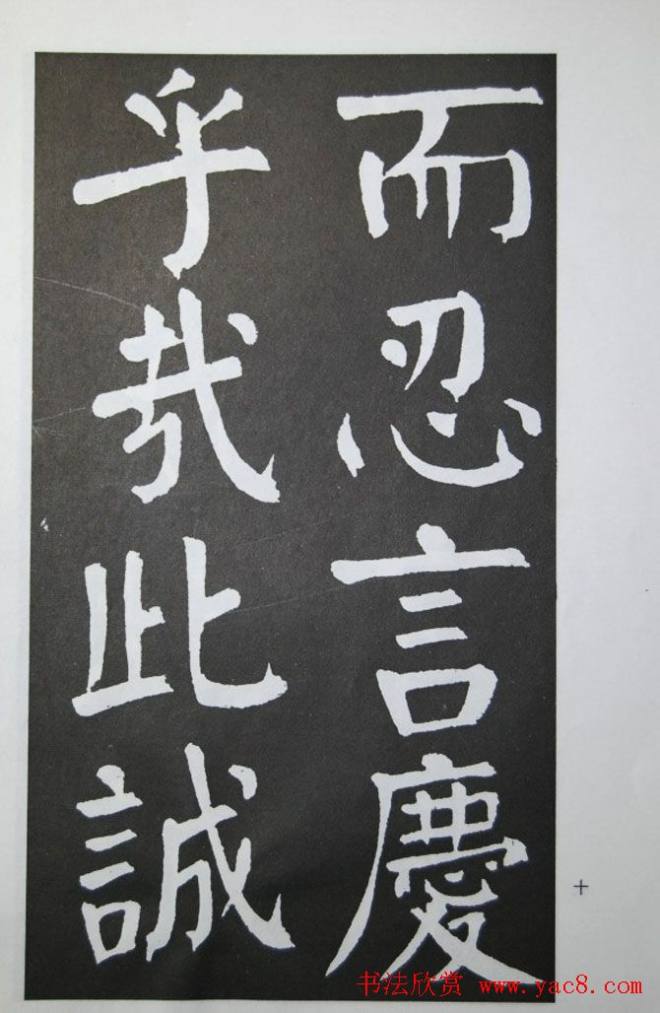 而忍言慶
乎哉此誠
十
书法欣赏 www.yac8.com